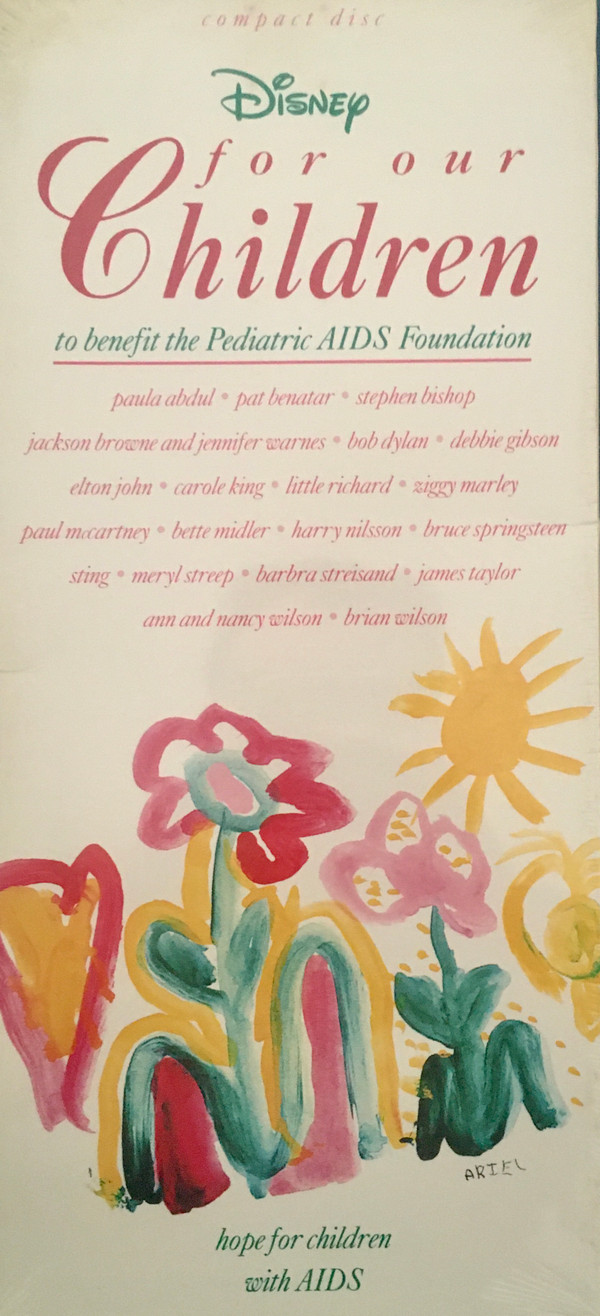 compact disc
Disney
for our
Children
to benefit the Pediatric AIDS Foundation
paula abdul • pat benatar • stephen bishop
jackson browne and jennifer warnes • bob dylan • debbie gibson
elton john • carole king • little richard • ziggy marley
paul mccartney • bette midler • harry nilsson • bruce springsteen
sting • meryl streep • barbra streisand • james taylor
ann and nancy wilson • brian wilson
ARIEL
hope for children
with AIDS